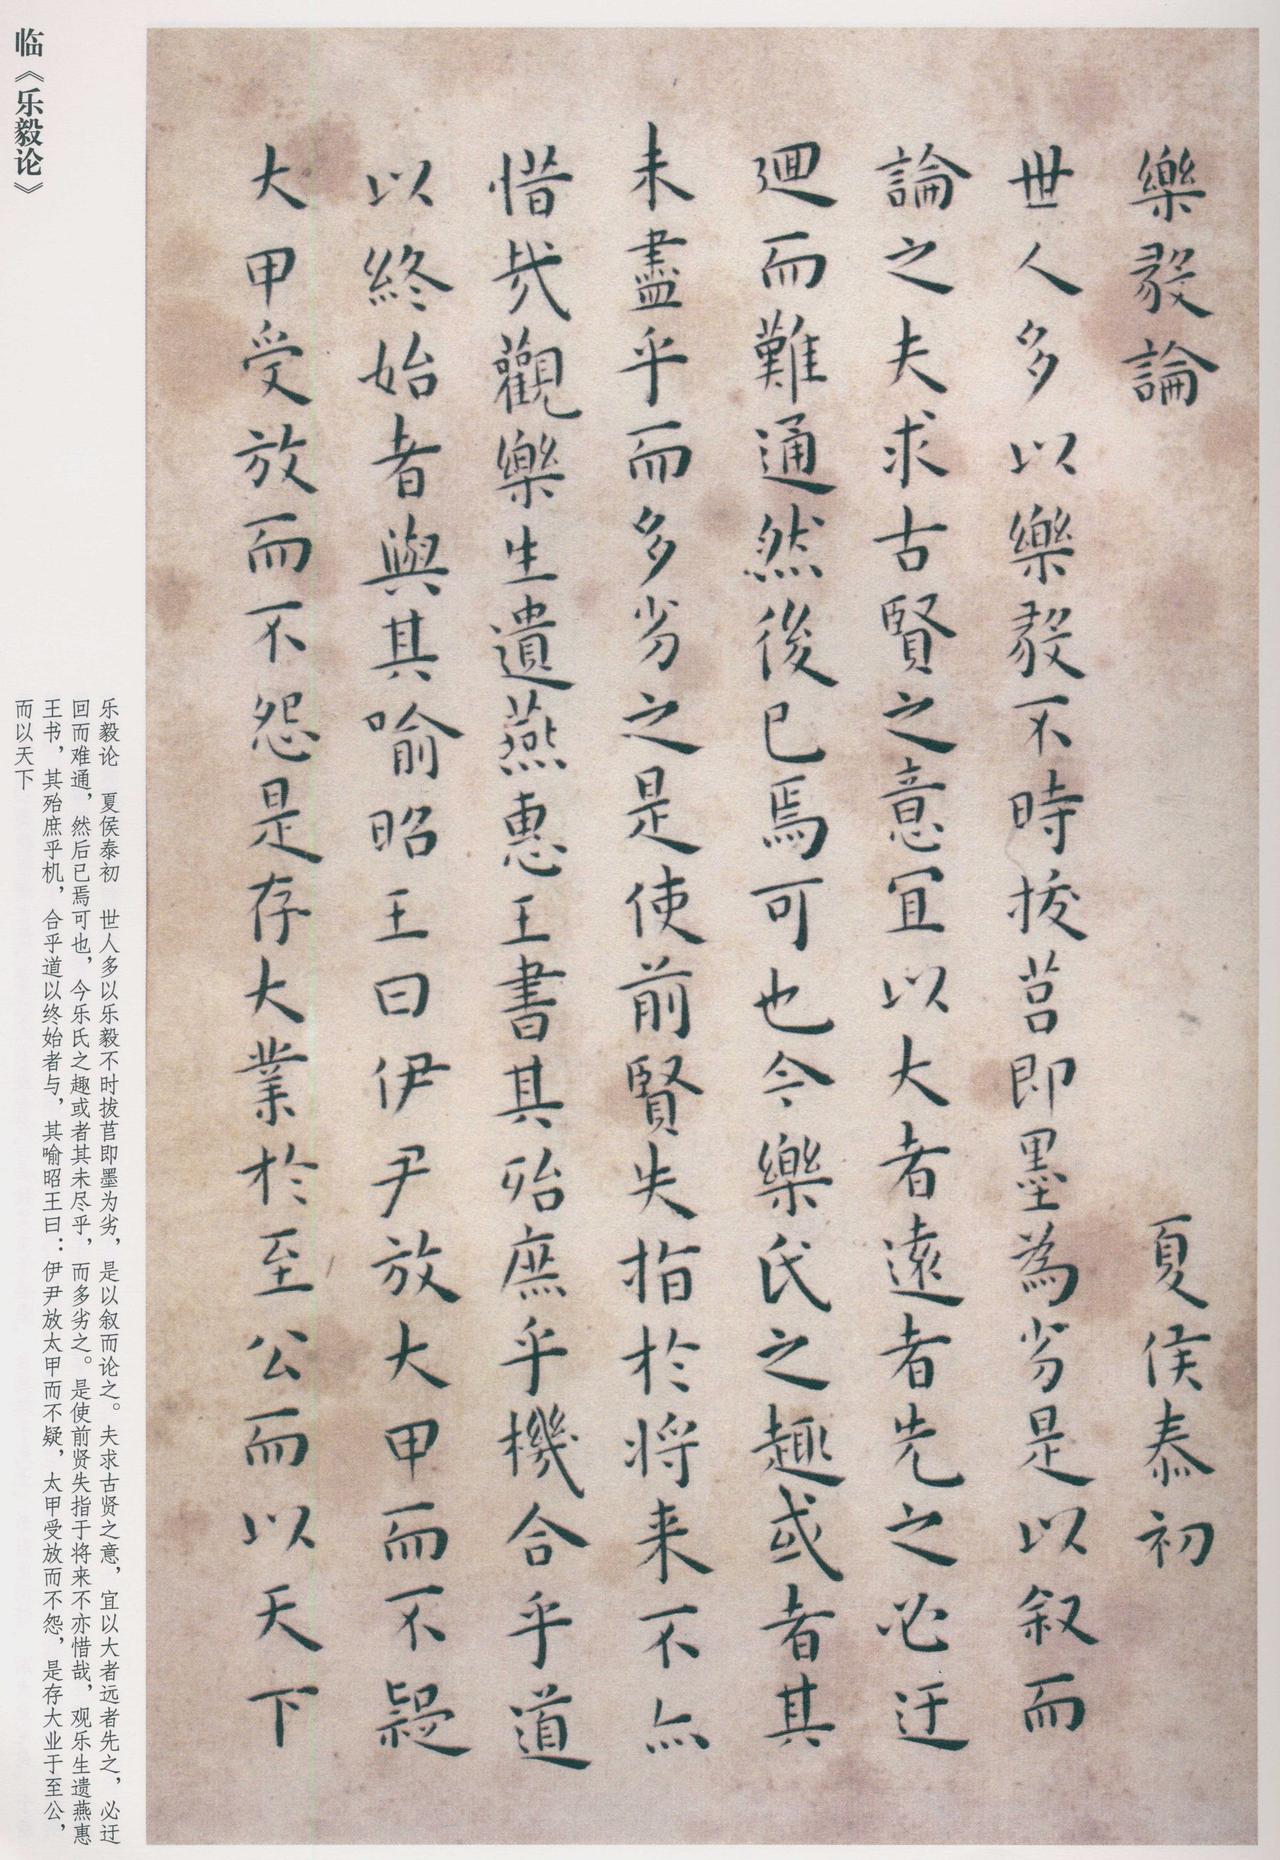 樂毅論 夏侯泰初
世人多以樂毅不時拔莒即墨為劣是以叙而
論之夫求古賢之意宜以大者遠者先之必迂
迴而難通然後已焉可也今樂氏之趣或者其
未盡乎而多劣之是使前賢失指於将来不亦
惜哉觀樂生遺燕惠王書其殆庶乎機合乎道
以終始者與其喻昭王曰伊尹放大甲而不疑
大甲受放而不怨是存大業於至公而以天下
临《乐毅论》
乐毅论 夏侯泰初 世人多以乐毅不时拔莒即墨为劣，是以叙而论之。夫求古贤之意，宜以大者远者先之，必迂
回而难通，然后已焉可也，今乐氏之趣或者其未尽乎，而多劣之。是使前贤失指于将来不亦惜哉，观乐生遗燕惠
王书，其殆庶乎机，合乎道以终始者与，其喻昭王曰：伊尹放太甲而不疑，太甲受放而不怨，是存大业于至公，
而以天下